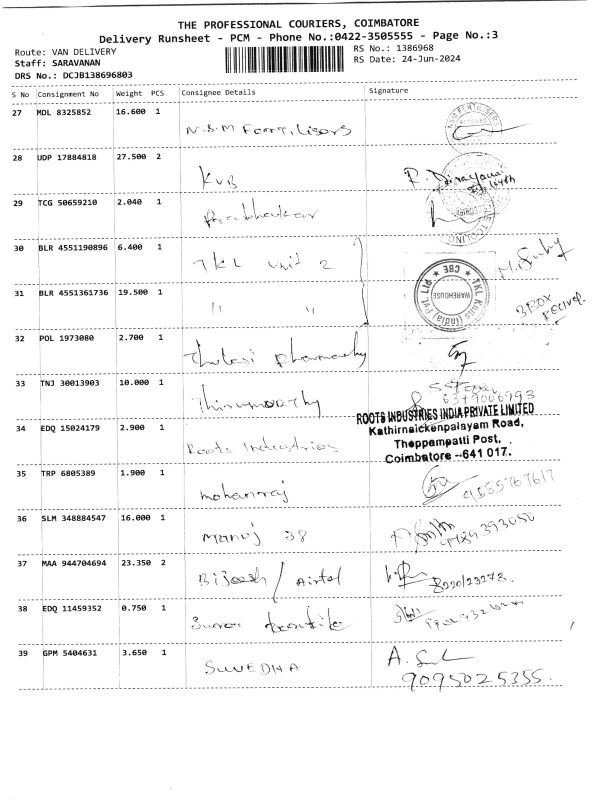 THE PROFESSIONAL COURIERS, COIMBATORE
Delivery Runsheet - PCM - Phone No.:0422-3505555 - Page No.:3
Route: VAN DELIVERY
RS No.: 1386968
Staff: SARAVANAN
RS Date: 24-Jun-2024
DRS No.: DCJB138696803
S No Consignment No Weight PCS Consignee Details Signature
27 MDL 8325852 16.600 1
N.S.M Fertilisers
28 UDP 17884818 27.500 2
KVB
29 TCG 50659210 2.040 1
Prabhakar
30 BLR 4551190896 6.400 1
TKL unit 2
31 BLR 4551361736 19.500 1
" "
CBE
TKL Knits (India) Pvt Ltd
WAREHOUSE
3 BOX
32 POL 1973080 2.700 1
Thulasi pharmachy
33 TNJ 30013903 10.000 1
Thirumoorthy
6379006993
34 EDQ 15024179 2.900 1
Roots Industries
ROOTS INDUSTRIES INDIA PRIVATE LIMITED
Kathirnaickenpalayam Road,
Thoppampatti Post,
Coimbatore - 641 017.
35 TRP 6805389 1.900 1
mohanraj
9555767617
36 SLM 348884547 16.000 1
Manoj 38
9489393050
37 MAA 944704694 23.350 2
Bijeesh / Airtel
8220123278.
38 EDQ 11459352 0.750 1
39 GPM 5404631 3.650 1
SUVEDHA
9095025355.